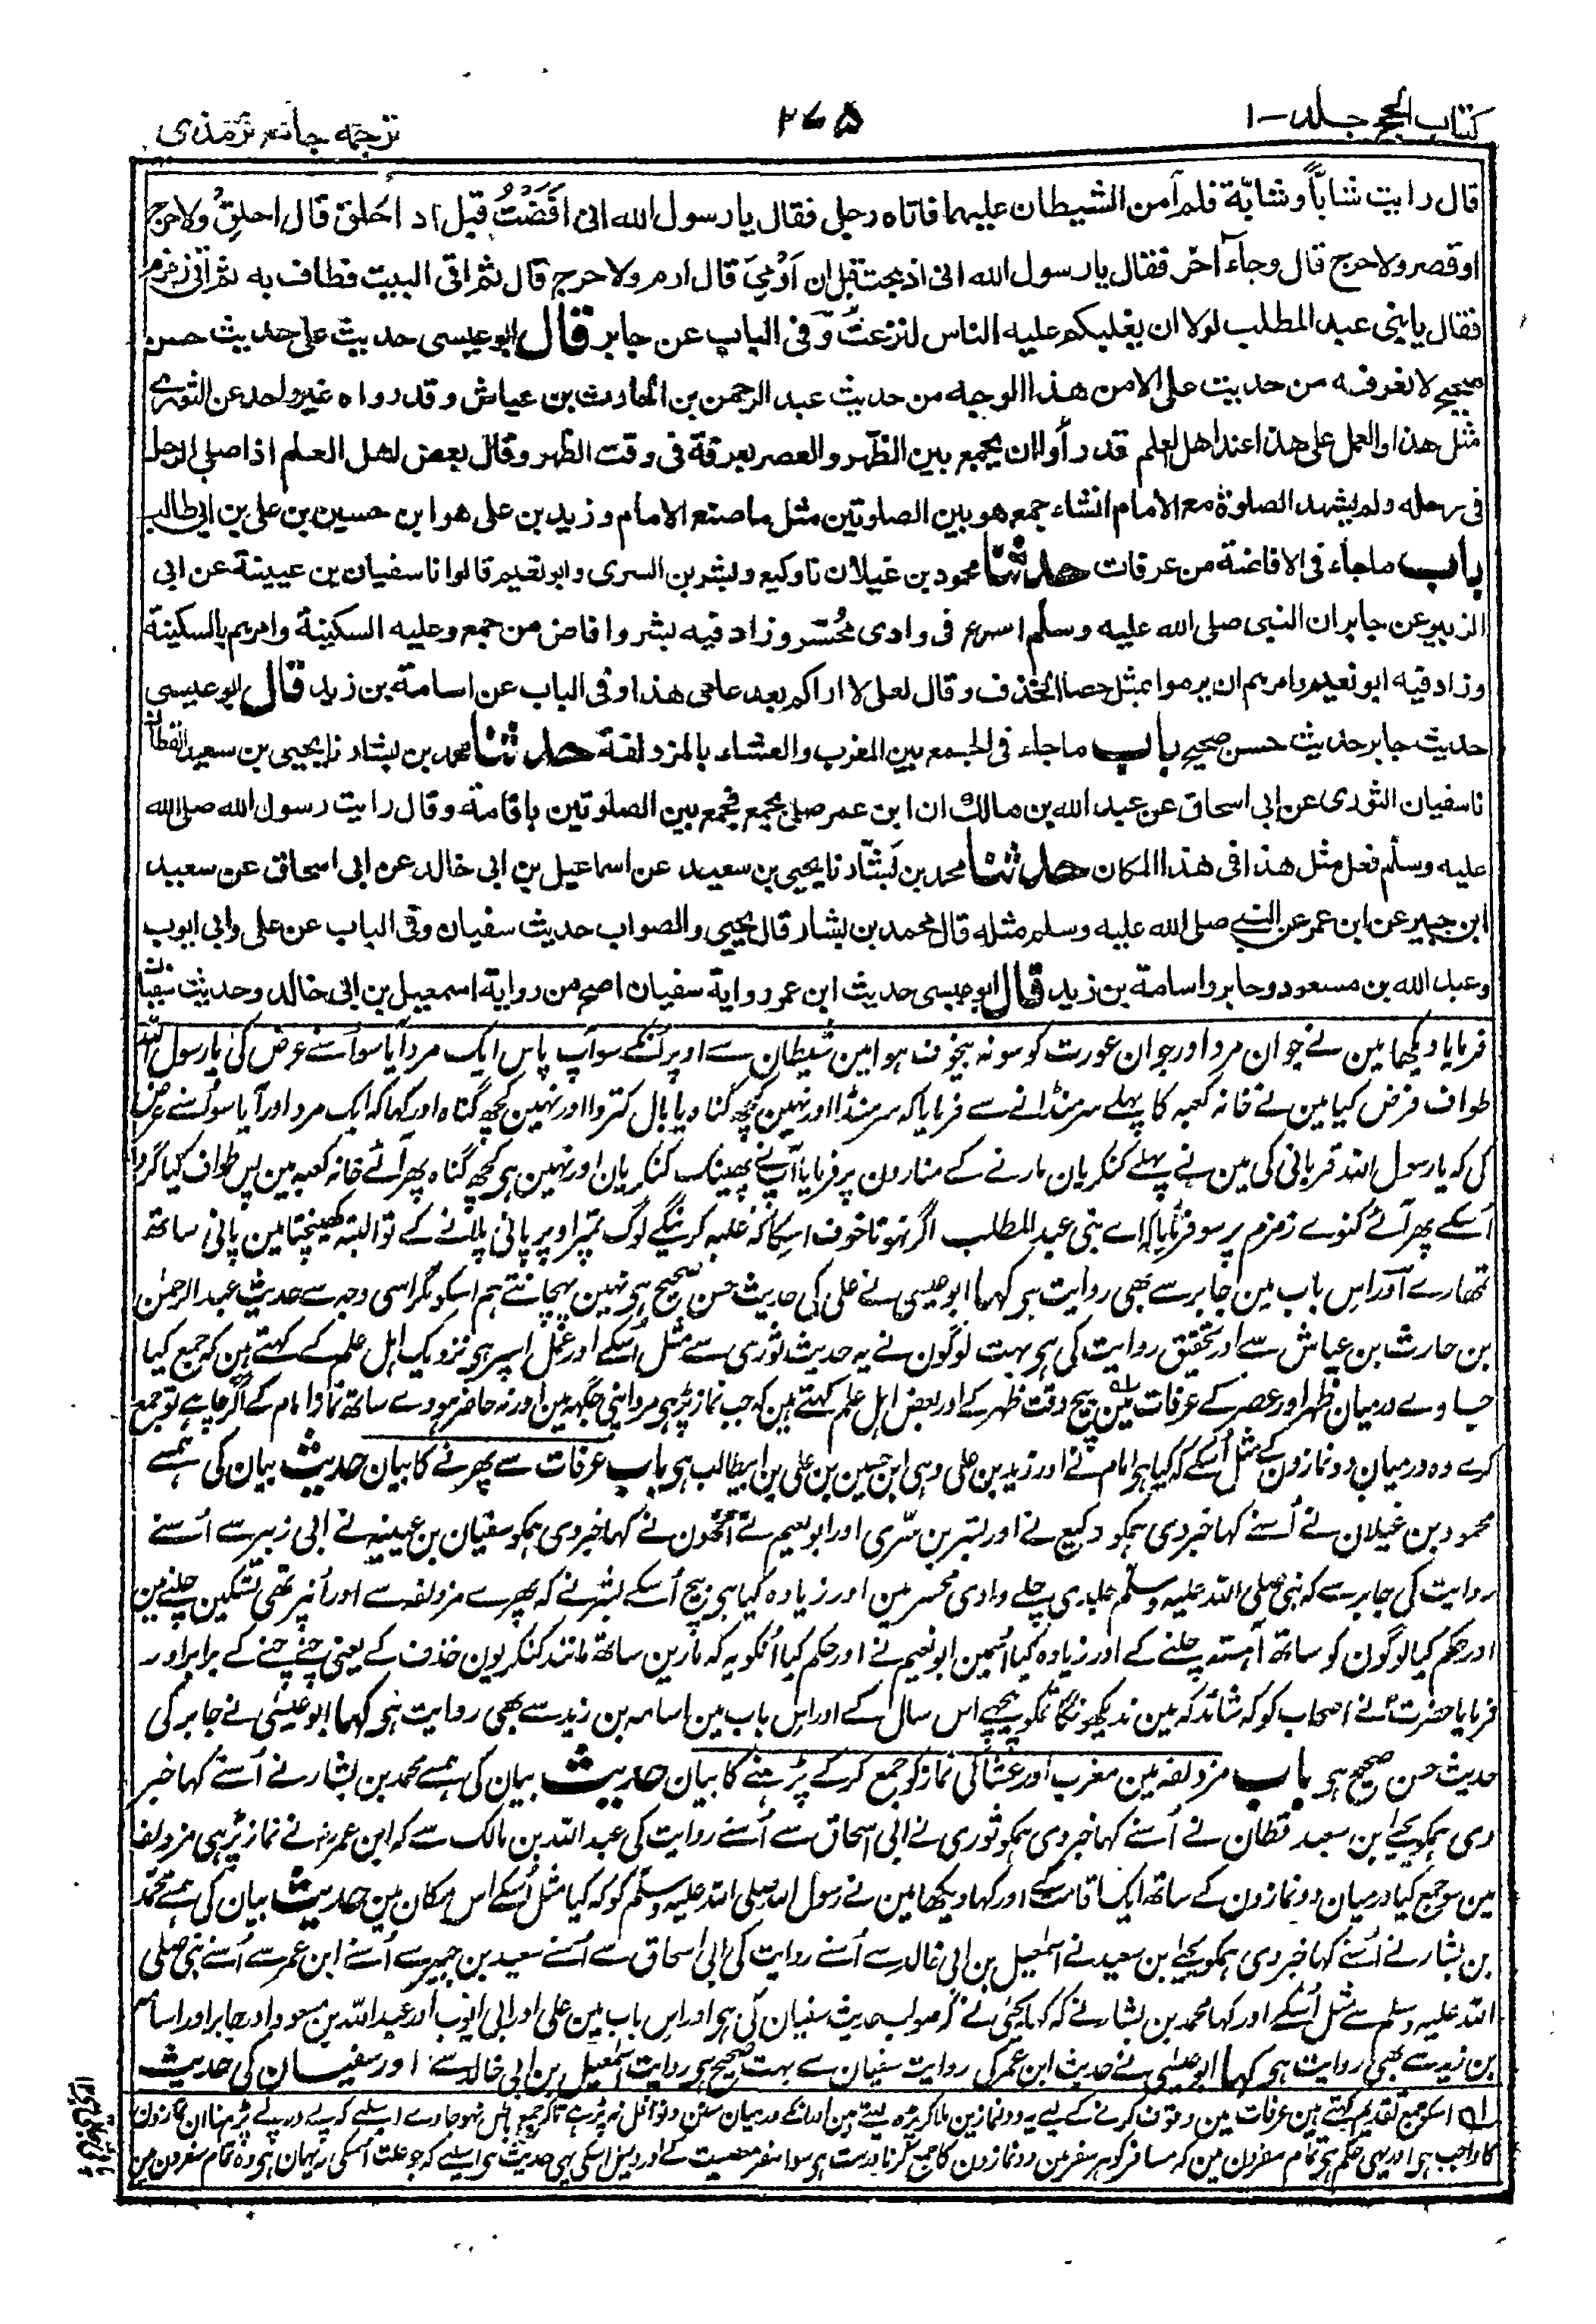 كتاب الحج جلد-١
٢٧٥
ترجمه جامع ترمذى
قال رايت شاباً وشابّة فلم آمن الشيطان عليهما فاتاه رجل فقال يا رسول الله انى افضتُ قبل ان احلق قال احلق ولا حرج
او قصر ولا حرج قال وجاء آخر فقال يا رسول الله انى ذبحت قبل ان ارمى قال ارم ولا حرج قال ثم اتى البيت فطاف به ثم اتى زمزم
فقال يا بنى عبد المطلب لولا ان يغلبكم عليه الناس لنزعتُ وفى الباب عن جابر قال ابو عيسى حديث على حديث حسن
صحيح لا نعرفه من حديث على الا من هذا الوجه من حديث عبد الرحمن بن الحارث بن عياش وقد رواه غير واحد عن الثورى
مثل هذا والعمل على هذا عند اهل العلم قد رأوا ان يجمع بين الظهر والعصر بعرفة فى وقت الظهر وقال بعض اهل العلم اذا صلى الرجل
فى رحله ولم يشهد الصلوة مع الامام انشاء جمع هو بين الصلوتين مثل ما صنع الامام وزيد بن على هو ابن حسين بن على بن ابى طالب
باب ما جاء فى الافاضة من عرفات حدثنا محمود بن غيلان نا وكيع وبشر بن السرى وابو نعيم قالوا نا سفيان بن عيينة عن ابى
الزبير عن جابر ان النبى صلى الله عليه وسلم اسرع فى وادى محسّر وزاد فيه بشر وافاض من جمع وعليه السكينة وامرهم بالسكينة
وزاد فيه ابو نعيم وامرهم ان يرموا بمثل حصا الخذف وقال لعلى لا اراكم بعد عامى هذا وفى الباب عن اسامة بن زيد قال ابو عيسى
حديث جابر حديث حسن صحيح باب ما جاء فى الجمع بين المغرب والعشاء بالمزدلفة حدثنا محمد بن بشار نا يحيى بن سعيد القطان
نا سفيان الثورى عن ابى اسحاق عن عبد الله بن مالك ان ابن عمر صلى بجمع فجمع بين الصلوتين باقامة وقال رايت رسول الله صلى الله
عليه وسلم فعل مثل هذا فى هذا المكان حدثنا محمد بن بشّار نا يحيى بن سعيد عن اسماعيل بن ابى خالد عن ابى اسحاق عن سعيد
ابن جبير عن ابن عمر عن النبى صلى الله عليه وسلم مثله قال محمد بن بشار قال يحيى والصواب حديث سفيان وفى الباب عن على وابى ايوب
وعبد الله بن مسعود وجابر واسامة بن زيد قال ابو عيسى حديث ابن عمر رواية سفيان اصح من رواية اسمعيل بن ابى خالد وحديث سفيان
فرمایا دیکھا مین نے جوان مرد اور جوان عورت کو سو نہ بیخوف ہوا مین شیطان سے اوپر اُنکے سو آپ پاس ایک مرد آیا سو اُسنے عرض کی یا رسول اللہ
طواف فرض کیا مین نے خانہ کعبہ کا پہلے سر منڈانے سے فرمایا کہ سر منڈا اور نہین کچھ گناہ یا بال کتروا اور نہین کچھ گناہ اور کہا کہ ایک مرد اور آیا سو اُسنے عرض
کی کہ یا رسول اللہ قربانی کی مین نے پہلے کنکریان مارنے کے منارون پر فرمایا آپنے پھینک کنکریان اور نہین ہی کچھ گناہ پھر آئے خانہ کعبہ مین پس طواف کیا گرد
اُسکے پھر آئے کنوے زمزم پر سو فرمایا کہ اے بنی عبدالمطلب اگر نہوتا خوف اسکا کہ غلبہ کرینگے لوگ تمپر اوپر پانی پلانے کے تو البتہ کھینچتا مین پانی ساتھ
تمھارے اور اس باب مین جابر سے بھی روایت ہی کہا ابو عیسی نے علی کی حدیث حسن صحیح ہی نہین پہچانتے ہم اسکو مگر اسی وجہ سے حدیث عبدالرحمٰن
بن حارث بن عیاش سے اور تحقیق روایت کی ہی بہت لوگون نے یہ حدیث ثوری سے مثل اُسکے اور عمل اسپر ہی نزدیک اہل علم کے کہتے ہین کہ جمع کیا
جاوے درمیان ظہر اور عصر کے عرفات مین بیچ وقت ظہر کے اور بعض اہل علم کہتے ہین کہ جب نماز پڑہی مرد اپنی جگہہ مین اور نہ حاضر ہووے ساتھ نماز امام کے اگر چاہے تو جمع
کرے وہ درمیان دو نمازون کے مثل اُسکے کہ کیا ہی امام نے اور زید بن علی وہی ابن حسین بن علی بن ابیطالب ہی باب عرفات سے پھرنے کا بیان حدیث بیان کی ہمسے
محمود بن غیلان نے اُسنے کہا خبر دی ہمکو وکیع نے اور بشر بن سّری اور ابو نعیم نے اُنھون نے کہا خبر دی ہمکو سفیان بن عیینہ نے ابی زبیر سے اُسنے
روایت کی جابر سے کہ نبی صلی اللہ علیہ وسلم جلدی چلے وادی محسر مین اور زیادہ کیا ہی بیچ اُسکے بشر نے کہ پھرے مزدلفہ سے اور اُنپر تھی تسکین چلنے مین
اور حکم کیا لوگون کو ساتھ آہستہ چلنے کے اور زیادہ کیا اُسمین ابو نعیم نے اور حکم کیا اُنکو یہ کہ مارین ساتھ مانند کنکریون خذف کے یعنی چنے چنے کے برابر اور
فرمایا حضرت نے اصحاب کو کہ شاید کہ مین ندیکھونگا تمکو پیچھے اس سال کے اور اس باب مین اسامہ بن زید سے بھی روایت ہی کہا ابو عیسٰی نے جابر کی
حدیث حسن صحیح ہی باب مزدلفہ مین مغرب اور عشا کی نماز کو جمع کرکے پڑہنے کا بیان حدیث بیان کی ہمسے محمد بن بشار نے اُسنے کہا خبر
دی ہمکو یحیٰ ابن سعید قطان نے اُسنے کہا خبر دی ہمکو ثوری نے ابی اسحاق سے اُسنے روایت کی عبد اللہ بن مالک سے کہ ابن عمر نے نماز پڑہی مزدلفہ
مین سو جمع کیا درمیان دو نمازون کے ساتھ ایک اقامت کے اور کہا دیکھا مین نے رسول اللہ صلی اللہ علیہ وسلم کو کہ کیا مثل اُسکے اس مکان مین حدیث بیان کی ہمسے محمد
بن بشار نے اُسنے کہا خبر دی ہمکو یحیٰ ابن سعید نے اسمٰعیل بن ابی خالد سے اُسنے روایت کی ابی اسحاق سے اُسنے سعید بن جبیر سے اُسنے ابن عمر سے اُسنے نبی صلی
اللہ علیہ وسلم سے مثل اُسکے اور کہا محمد بن بشار نے کہ کہا یحیٰی نے کہ صواب حدیث سفیان کی ہی اور اس باب مین علی اور ابی ایوب اور عبد اللہ بن مسعود اور جابر اور اسامہ
بن زید سے بھی روایت ہی کہا ابو عیسٰی نے حدیث ابن عمر کی روایت سفیان سے بہت صحیح ہی روایت اسمٰعیل بن ابی خالد سے اور سفیان کی حدیث
اسکو جمع تقدیم کہتے ہین عرفات مین وقوف کرنے کے لیے یہ دو نمازین ملا کر پڑہ لیتے ہین اور انکے درمیان سنن و نوافل نہ پڑہے تاکہ جمع باطل نہو جاوے اسلیے کہ پے درپے پڑہنا ان نمازون
کا واجب ہی اور یہی حکم ہی تمام سفرون مین کہ مسافر کو ہر سفر مین دو نمازون کا جمع کرنا درست ہی سوا سفر معصیت کے اور دلیل اسکی یہی حدیث ہی اسلیے کہ جو علت اُسکی یہان ہی وہ تمام سفرون مین